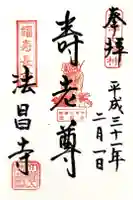 奉拝
平成三十一年
二月一日
寿老尊
法昌寺